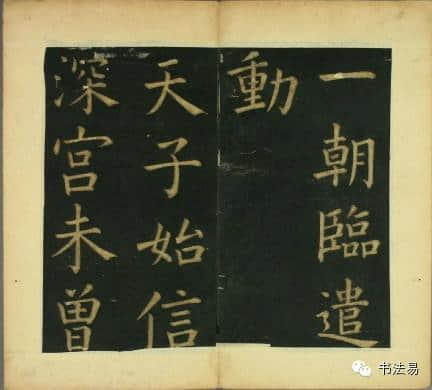 一朝臨遣
動
天子始信
深宮未曾
书法易